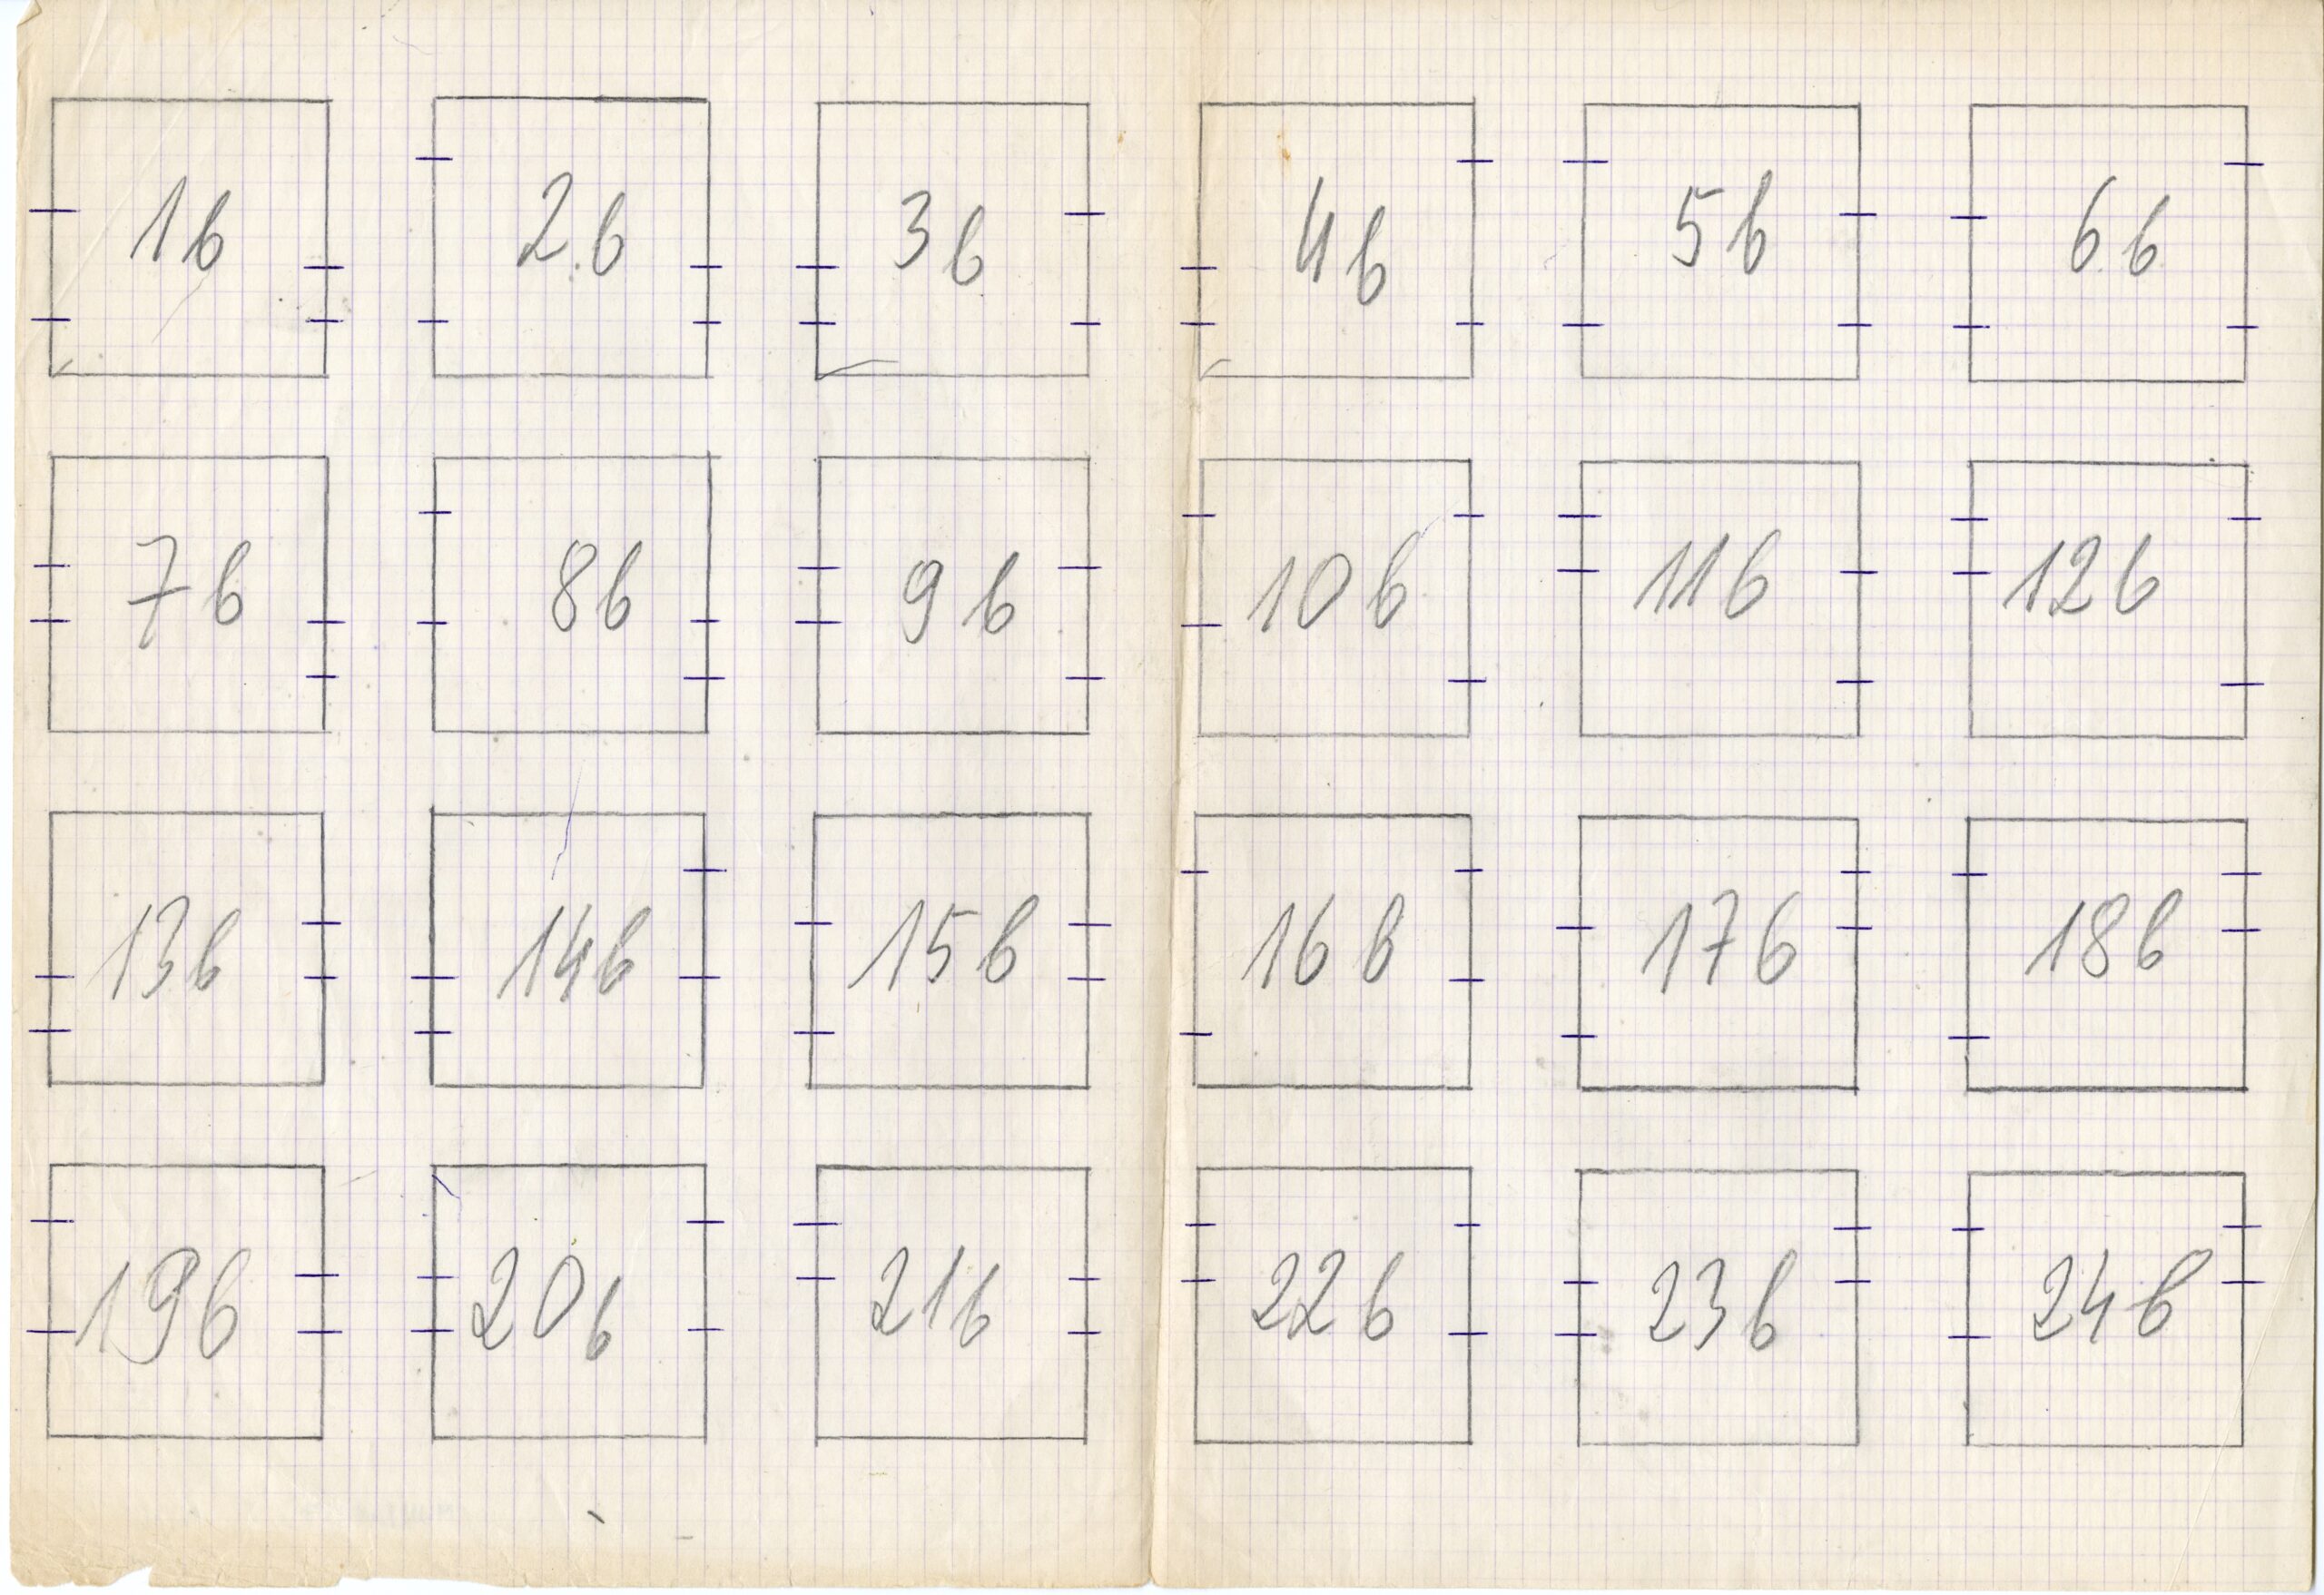 1b 2b 3b 4b 5b 6b
7b 8b 9b 10b 11b 12b
13b 14b 15b 16b 17b 18b
19b 20b 21b 22b 23b 24b